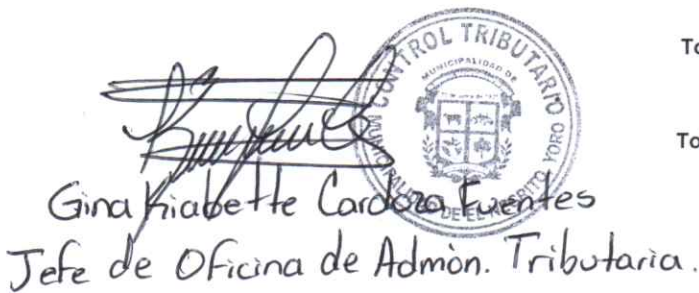 To
CONTROL TRIBUTARIO
MUNICIPALIDAD DE
To
MUNICIPALIDAD DE EL NEGRITO YORO
Gina Kiabette Cardoza Fuentes
Jefe de Oficina de Admòn. Tributaria.